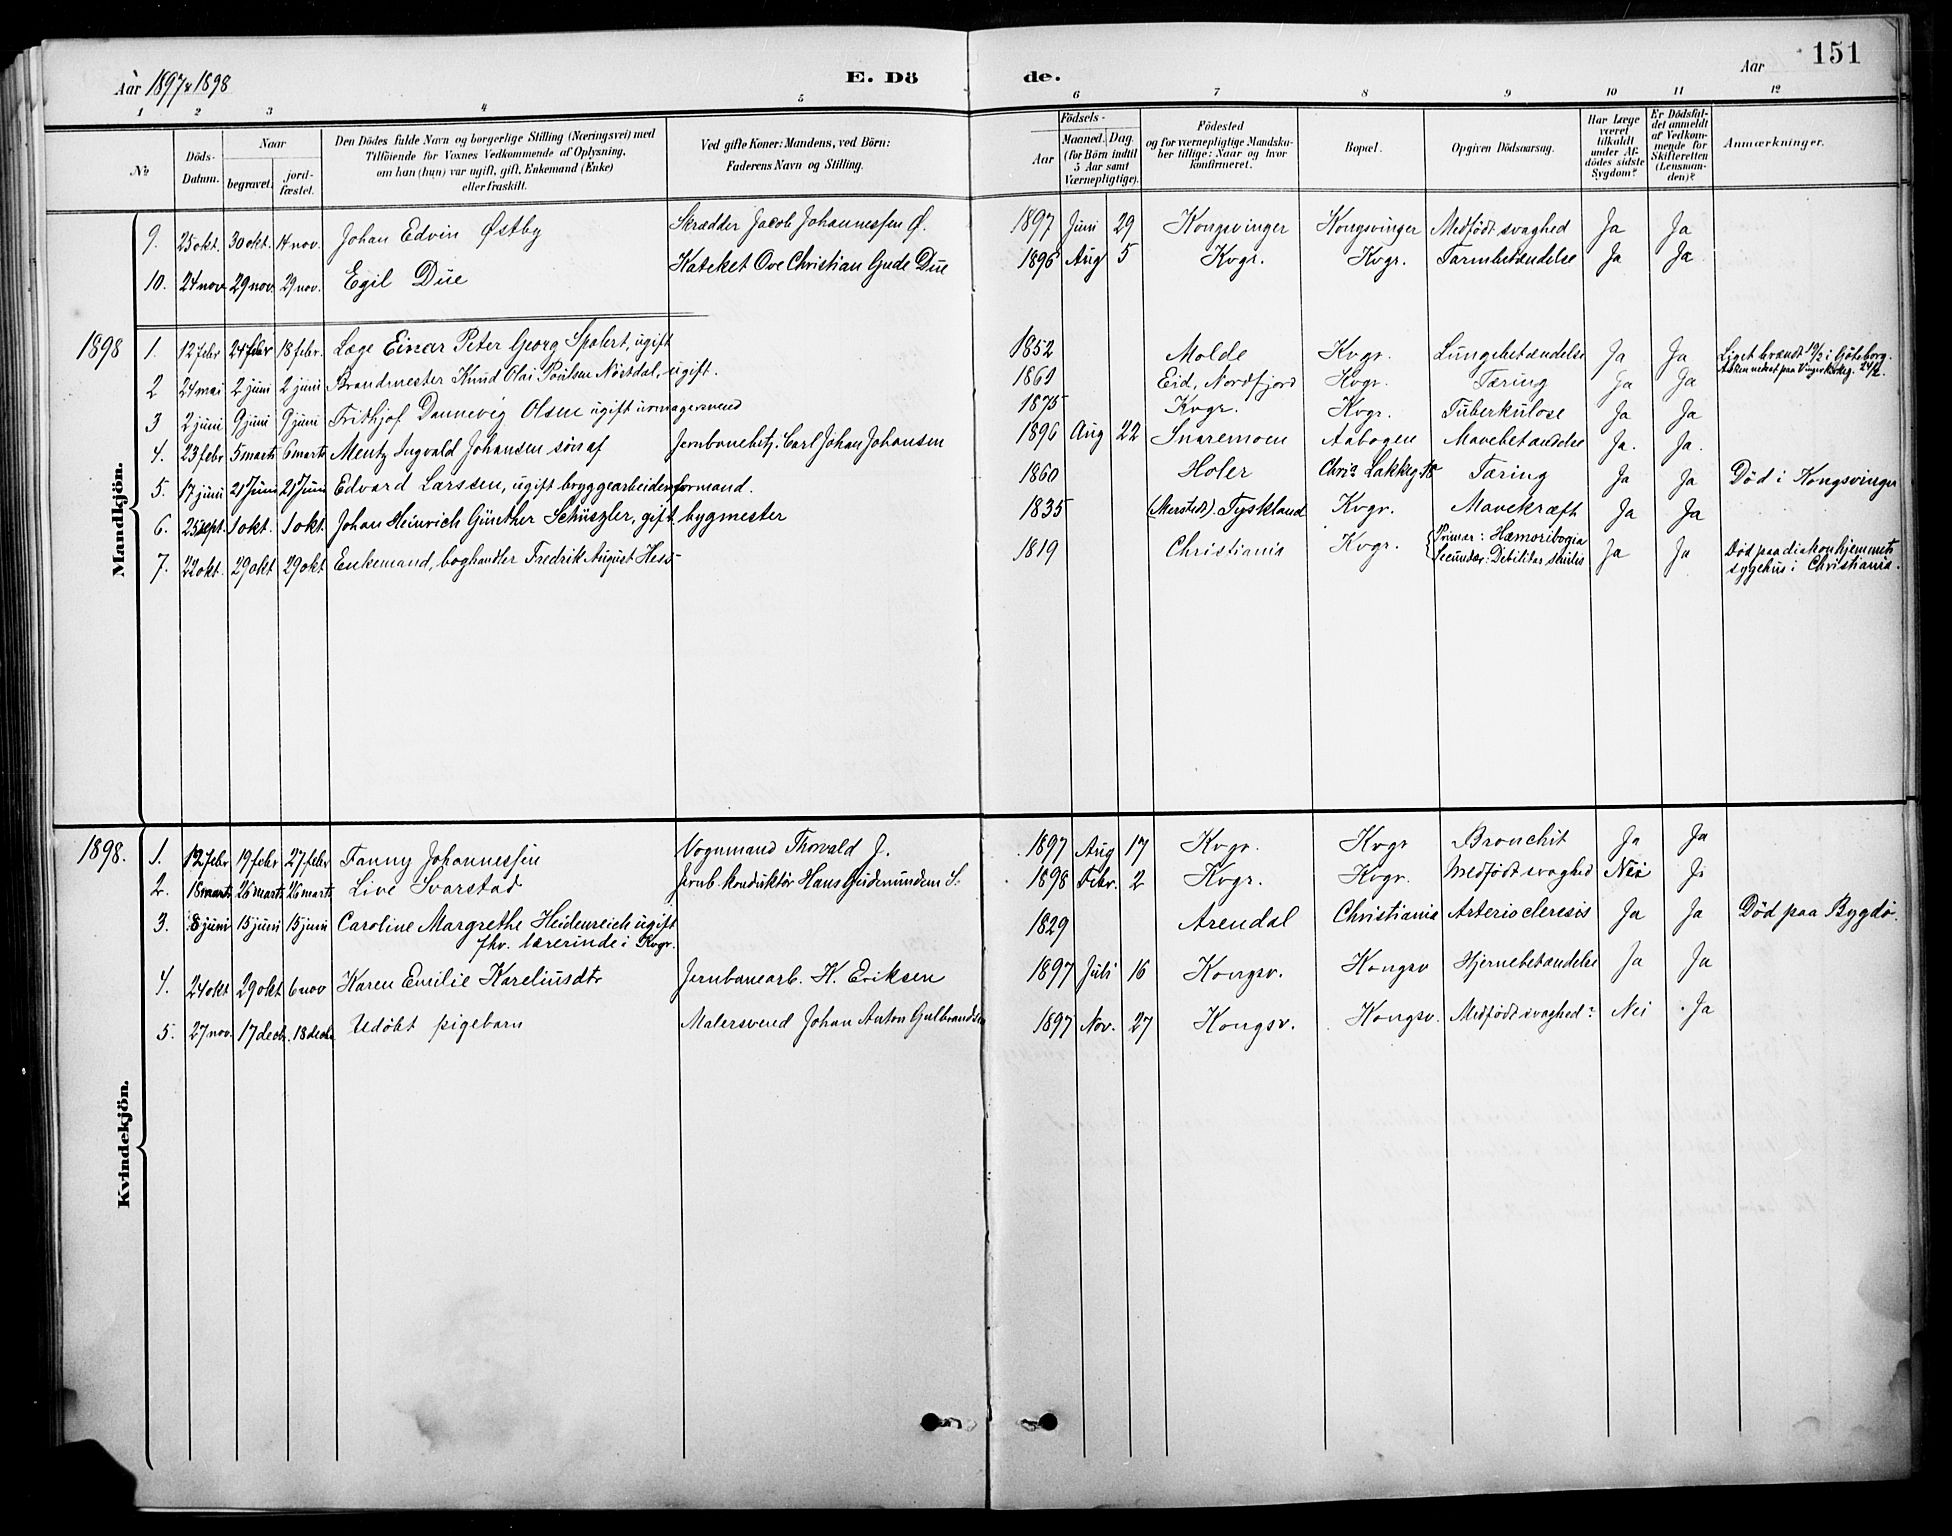 Aar 1897 & 1898
E. Dö
de.
Aar
151
1 2 3 4 5 6 7 8 9 10 11 12
No
Döds-Datum.
Naar
begravet.
jord-fæstet.
Den Dödes fulde Navn og borgerlige Stilling (Næringsvei) med
Tilföiende for Voxnes Vedkommende af Oplysning,
om han (hun) var ugift, gift, Enkemand (Enke)
eller fraskilt.
Ved gifte Koner: Mandens, ved Börn:
Faderens Navn og Stilling.
Födsels-
Aar
Maaned. Dag.
(for Börn indtil
5 Aar samt
Værnepligtige).
Födested
og for værnepligtige Mandska-
ber tillige: Naar og hvor
konfirmeret.
Bopæl.
Opgiven Dödsaarsag.
Har Læge
været
tilkaldt
under Af-
dödes sidste
Sygdom?
Er Dödsfal-
det anmeldt
af Vedkom-
mende for
Skifteretten
(Lensman-
den)?
Anmærkninger.
Mandkjön.
9. 25 okt. 30 okt. 14 nov. Johan Edvin Østby Skrædder Jacob Johannessen Ø. 1897 Juni 29 Kongsvinger Kongsvinger Medfödt svaghed Ja Ja
10. 24 nov 29 nov. 29 nov. Egil Due Kateket Ove Christian Gude Due 1896 Aug 5 Kvgr. Kvgr. Tarmbetændelse Ja Ja
1898 1. 12 febr 24 febr 18 febr. Læge Einar Peter Georg ugift 1852 Molde Kvgr. Lungebetændelse Ja Ja Liget brændt 19/2 i Göteborg.
Asken nedsat paa 24/2.
2 24 mai 2 juni 2 juni Brandmester Knud Olai Poulsen Nöstdal, ugift. Eid, Nordfjord Kvgr. Tæring Ja Ja
3 2 juni 9 juni 9 juni Frithjof Dannevig Olsen ugift urmagersvend 1875 Kvgr. Kvgr. Tuberkulose Ja Ja
4. 23 febr 5 marts 6 marts Mentz Ingvald Johansen sön af Jernbanebetj. Carl Johan Johansen 1896 Aug 22 Snaremoen Aabogen Mavebetændelse Ja. Ja.
5. 17 juni 21 Juni 21 Juni Edvard Larssen, ugift bryggearbeiderformand. 1860 Holer Chria Lakkeg. Tæring Ja Ja Död i Kongsvinger
6. 25 sept. 1 okt. 1 okt. Johan Heinrich Günther Schüszler, gift bygmester 1835 (Merstedt). Tyskland Kvgr. Mavekræft Ja Ja
7. 22 okt. 29 okt 29 okt Enkemand, boghandler Fredrik August Hess 1819 Christiania Kvgr. Primær: Hæmoribogia
Secundær: Debilitas senilis Ja Ja Död paa diakonhjemmets
sygehus i Christiania.
Kvindekjön.
1898. 1. 12 febr 19 febr 27 febr Fanny Johannessen Vognmand Thorvald J. 1897 Aug 17 Kvgr. Kvgr Bronchit Ja Ja
2. 18 marts 26 marts 26 marts Live Svarstad Jernb. konduktör Hans Gudmundsen S. 1898 Febr. 2 Kvgr. Kvgr. Medfödt svaghed Nei Ja
3. 8 juni 15 juni 15 juni Caroline Margrethe Heidenreich ugift
fhv. lærerinde i Kvgr. 1829 Arendal Christiania Arterioscleresis Ja Ja Död paa Bygdö.
4. 24 okt 29 okt 6 nov Karen Emilie Kareliusdtr Jernbanearb. K. Eriksen 1897 Juli 16 Kongsv. Kongsv Hjernebetændelse Ja Ja
5. 27 nov. 17 decbr. 18 decbr. Udöbt pigebarn Malersvend Johan Anton Gulbrandsen 1897 Nov. 27 Kongsv. Kongsv. Medfödt svaghed? Nei Ja